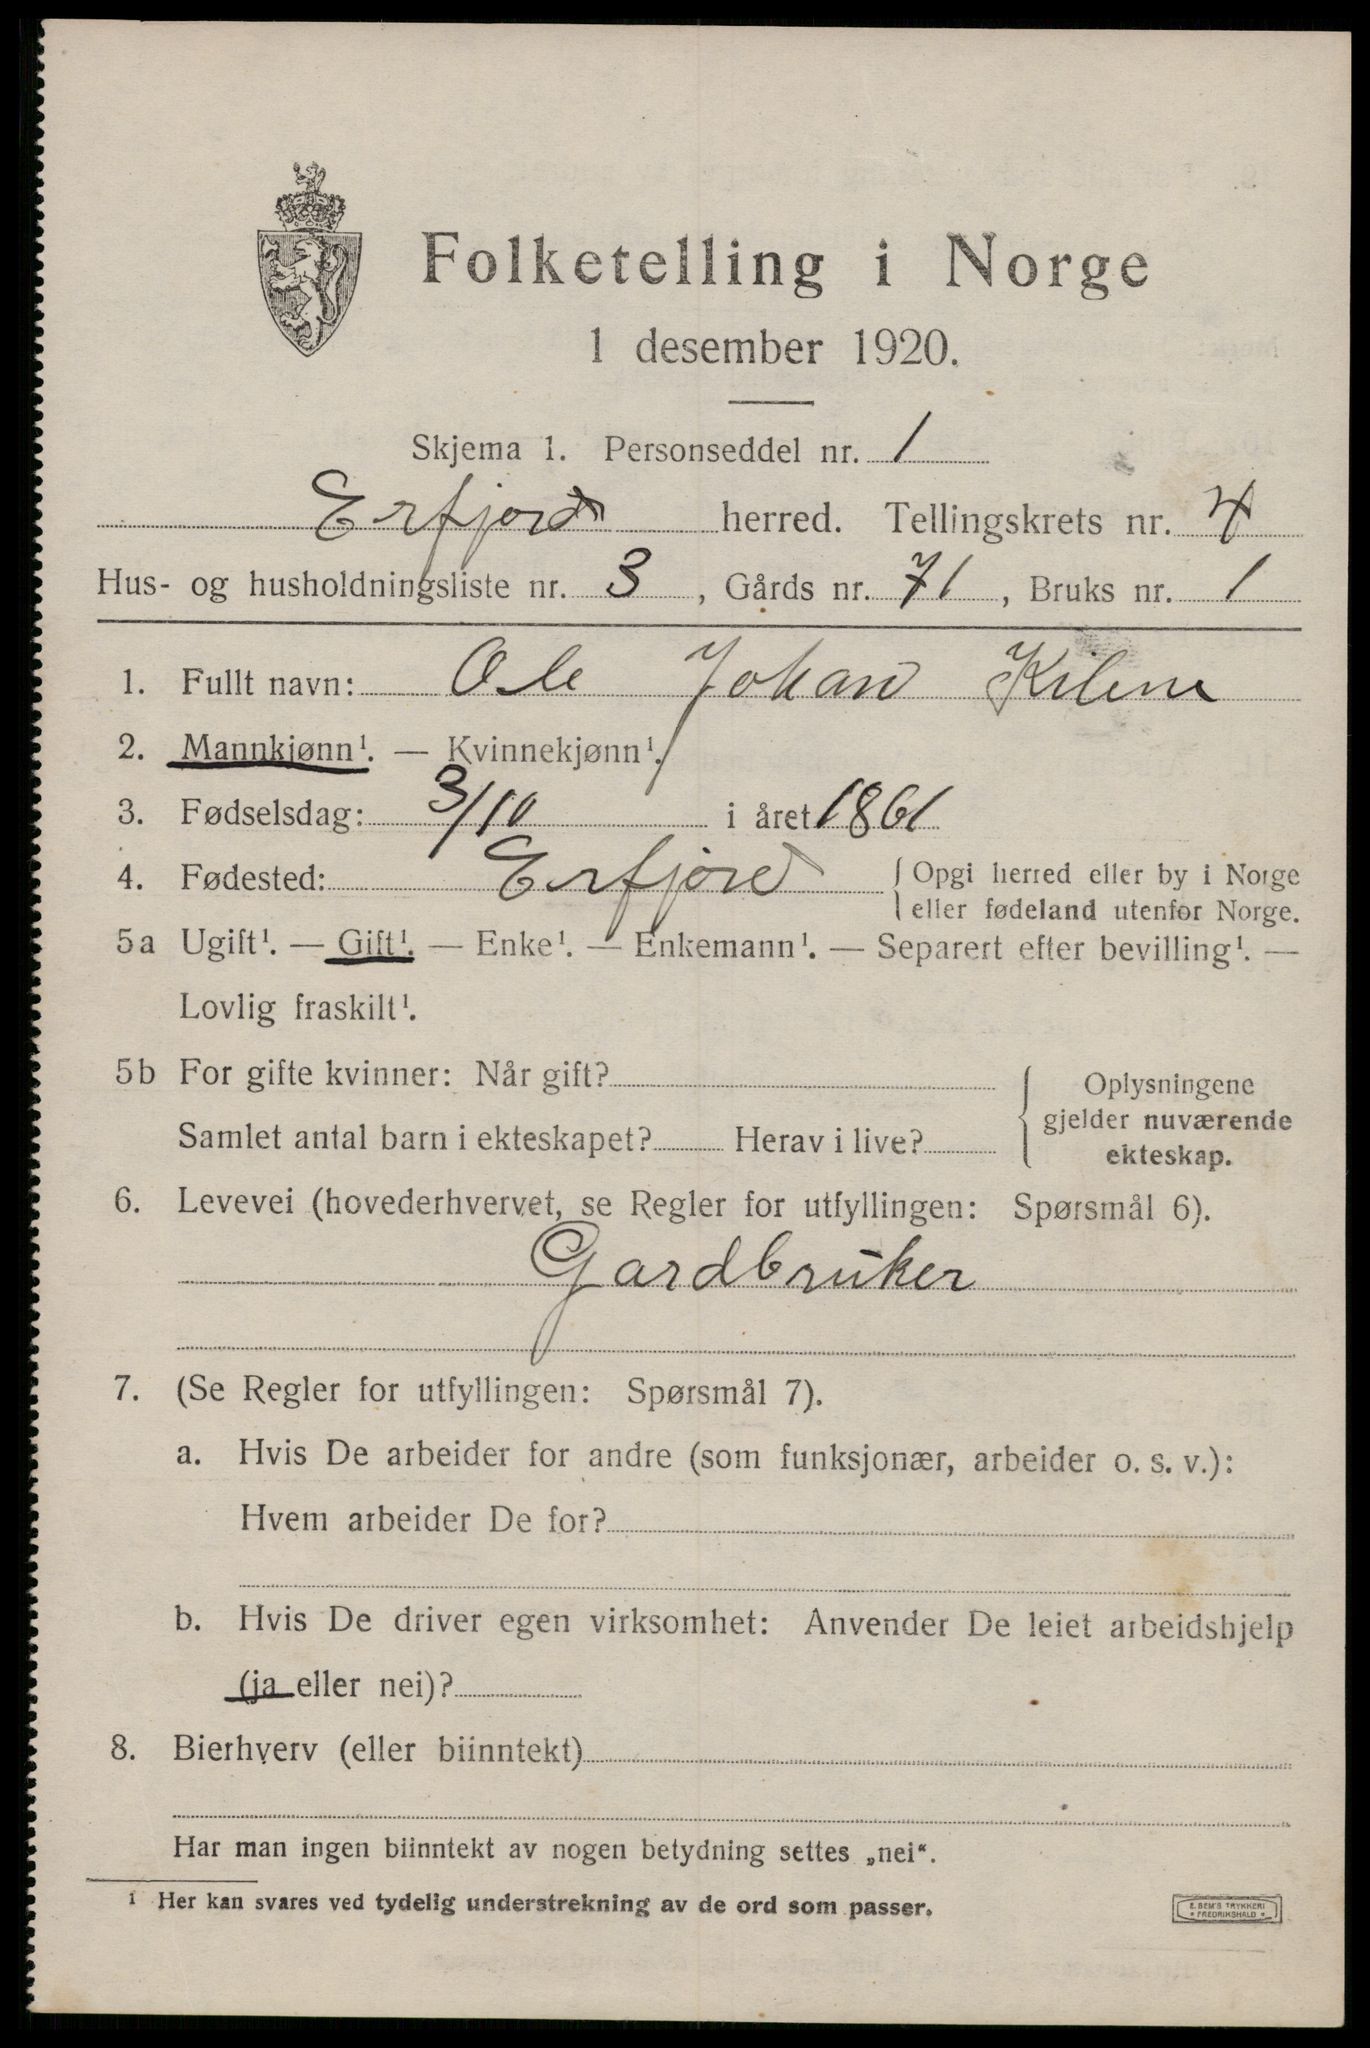 Folketelling i Norge
1 desember 1920.
Skjema 1. Personseddel nr. 1
Erfjord herred. Tellingskrets nr. 4
Hus- og husholdningsliste nr. 3, Gårds nr. 71, Bruks nr. 1
1. Fullt navn: Ole Johan Kilene
2. Mannkjønn¹. — Kvinnekjønn¹.
3. Fødselsdag: 3/10 i året 1861
4. Fødested: Erfjord { Opgi herred eller by i Norge
eller fødeland utenfor Norge.
5a Ugift¹. — Gift¹. — Enke¹. — Enkemann¹. — Separert efter bevilling¹. —
Lovlig fraskilt¹.
5b For gifte kvinner: Når gift?
Samlet antal barn i ekteskapet? Herav i live?
Oplysningene
gjelder nuværende
ekteskap.
6. Levevei (hovederhvervet, se Regler for utfyllingen: Spørsmål 6).
Gardbruker
7. (Se Regler for utfyllingen: Spørsmål 7).
a. Hvis De arbeider for andre (som funksjonær, arbeider o. s. v.):
Hvem arbeider De for?
b. Hvis De driver egen virksomhet: Anvender De leiet arbeidshjelp
(ja eller nei)?
8. Bierhverv (eller biinntekt)
Har man ingen biinntekt av nogen betydning settes „nei“.
¹ Her kan svares ved tydelig understrekning av de ord som passer.
E. SEM'S TRYKKERI
* FREDRIKSHALD *